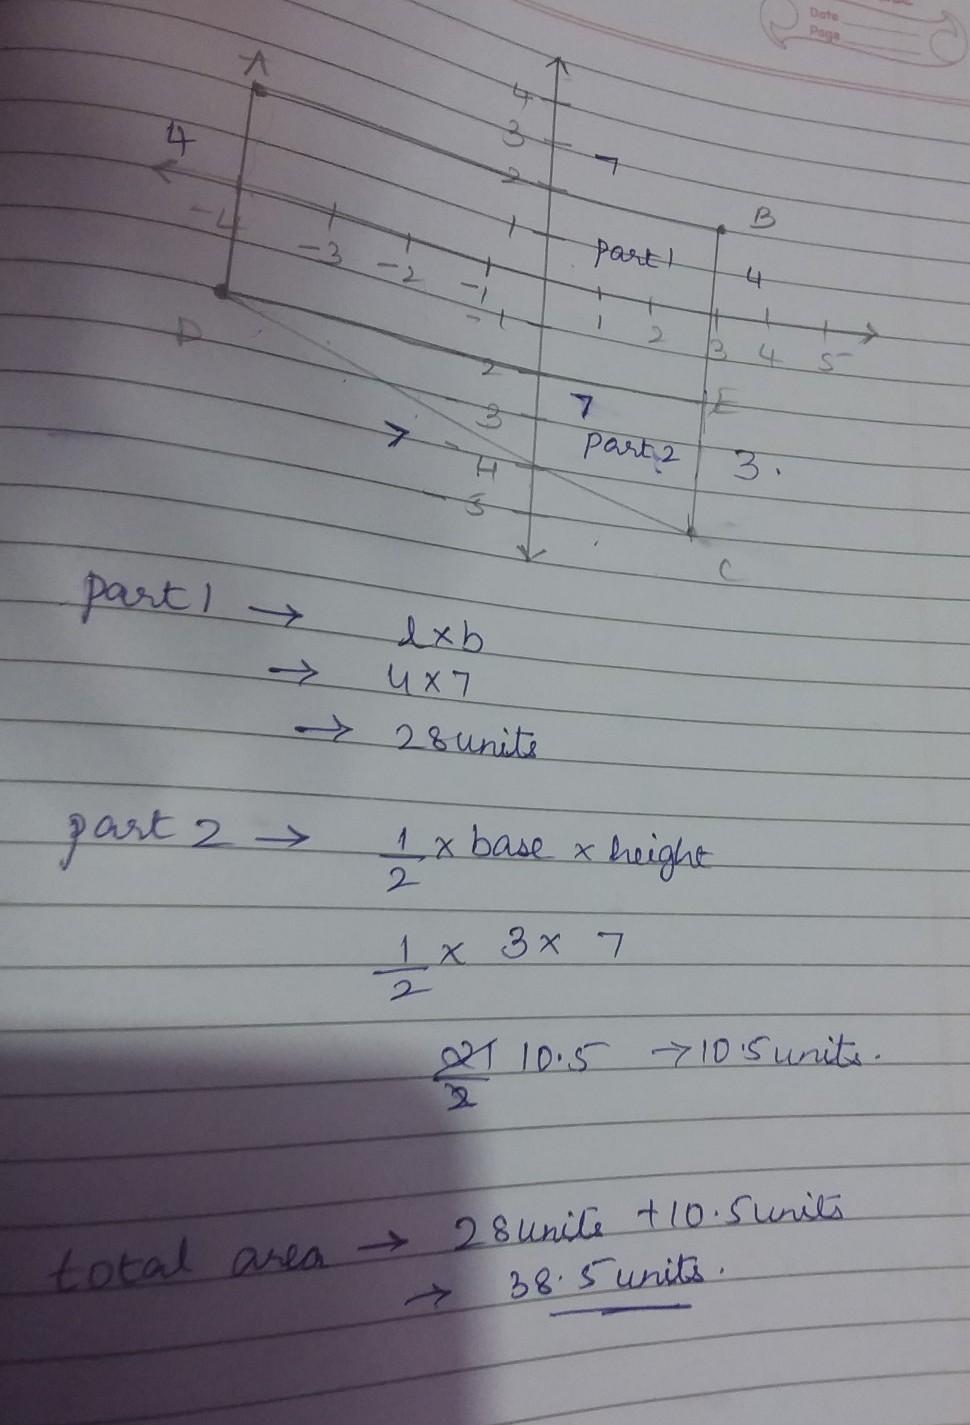 Date
Page
A
4
3
7
4
2
B
-4
1
part 1
4
-3
-2
-1
-1
1
2
3
4
5
D
2
E
3
7
part 2
3.
4
5
C
part 1 →
l×b
→ 4×7
→ 28 units
part 2 → 1/2 × base × height
1/2 × 3 × 7
21/2 10.5 → 10.5 units.
total area → 28 units + 10.5 units
→ 38.5 units.